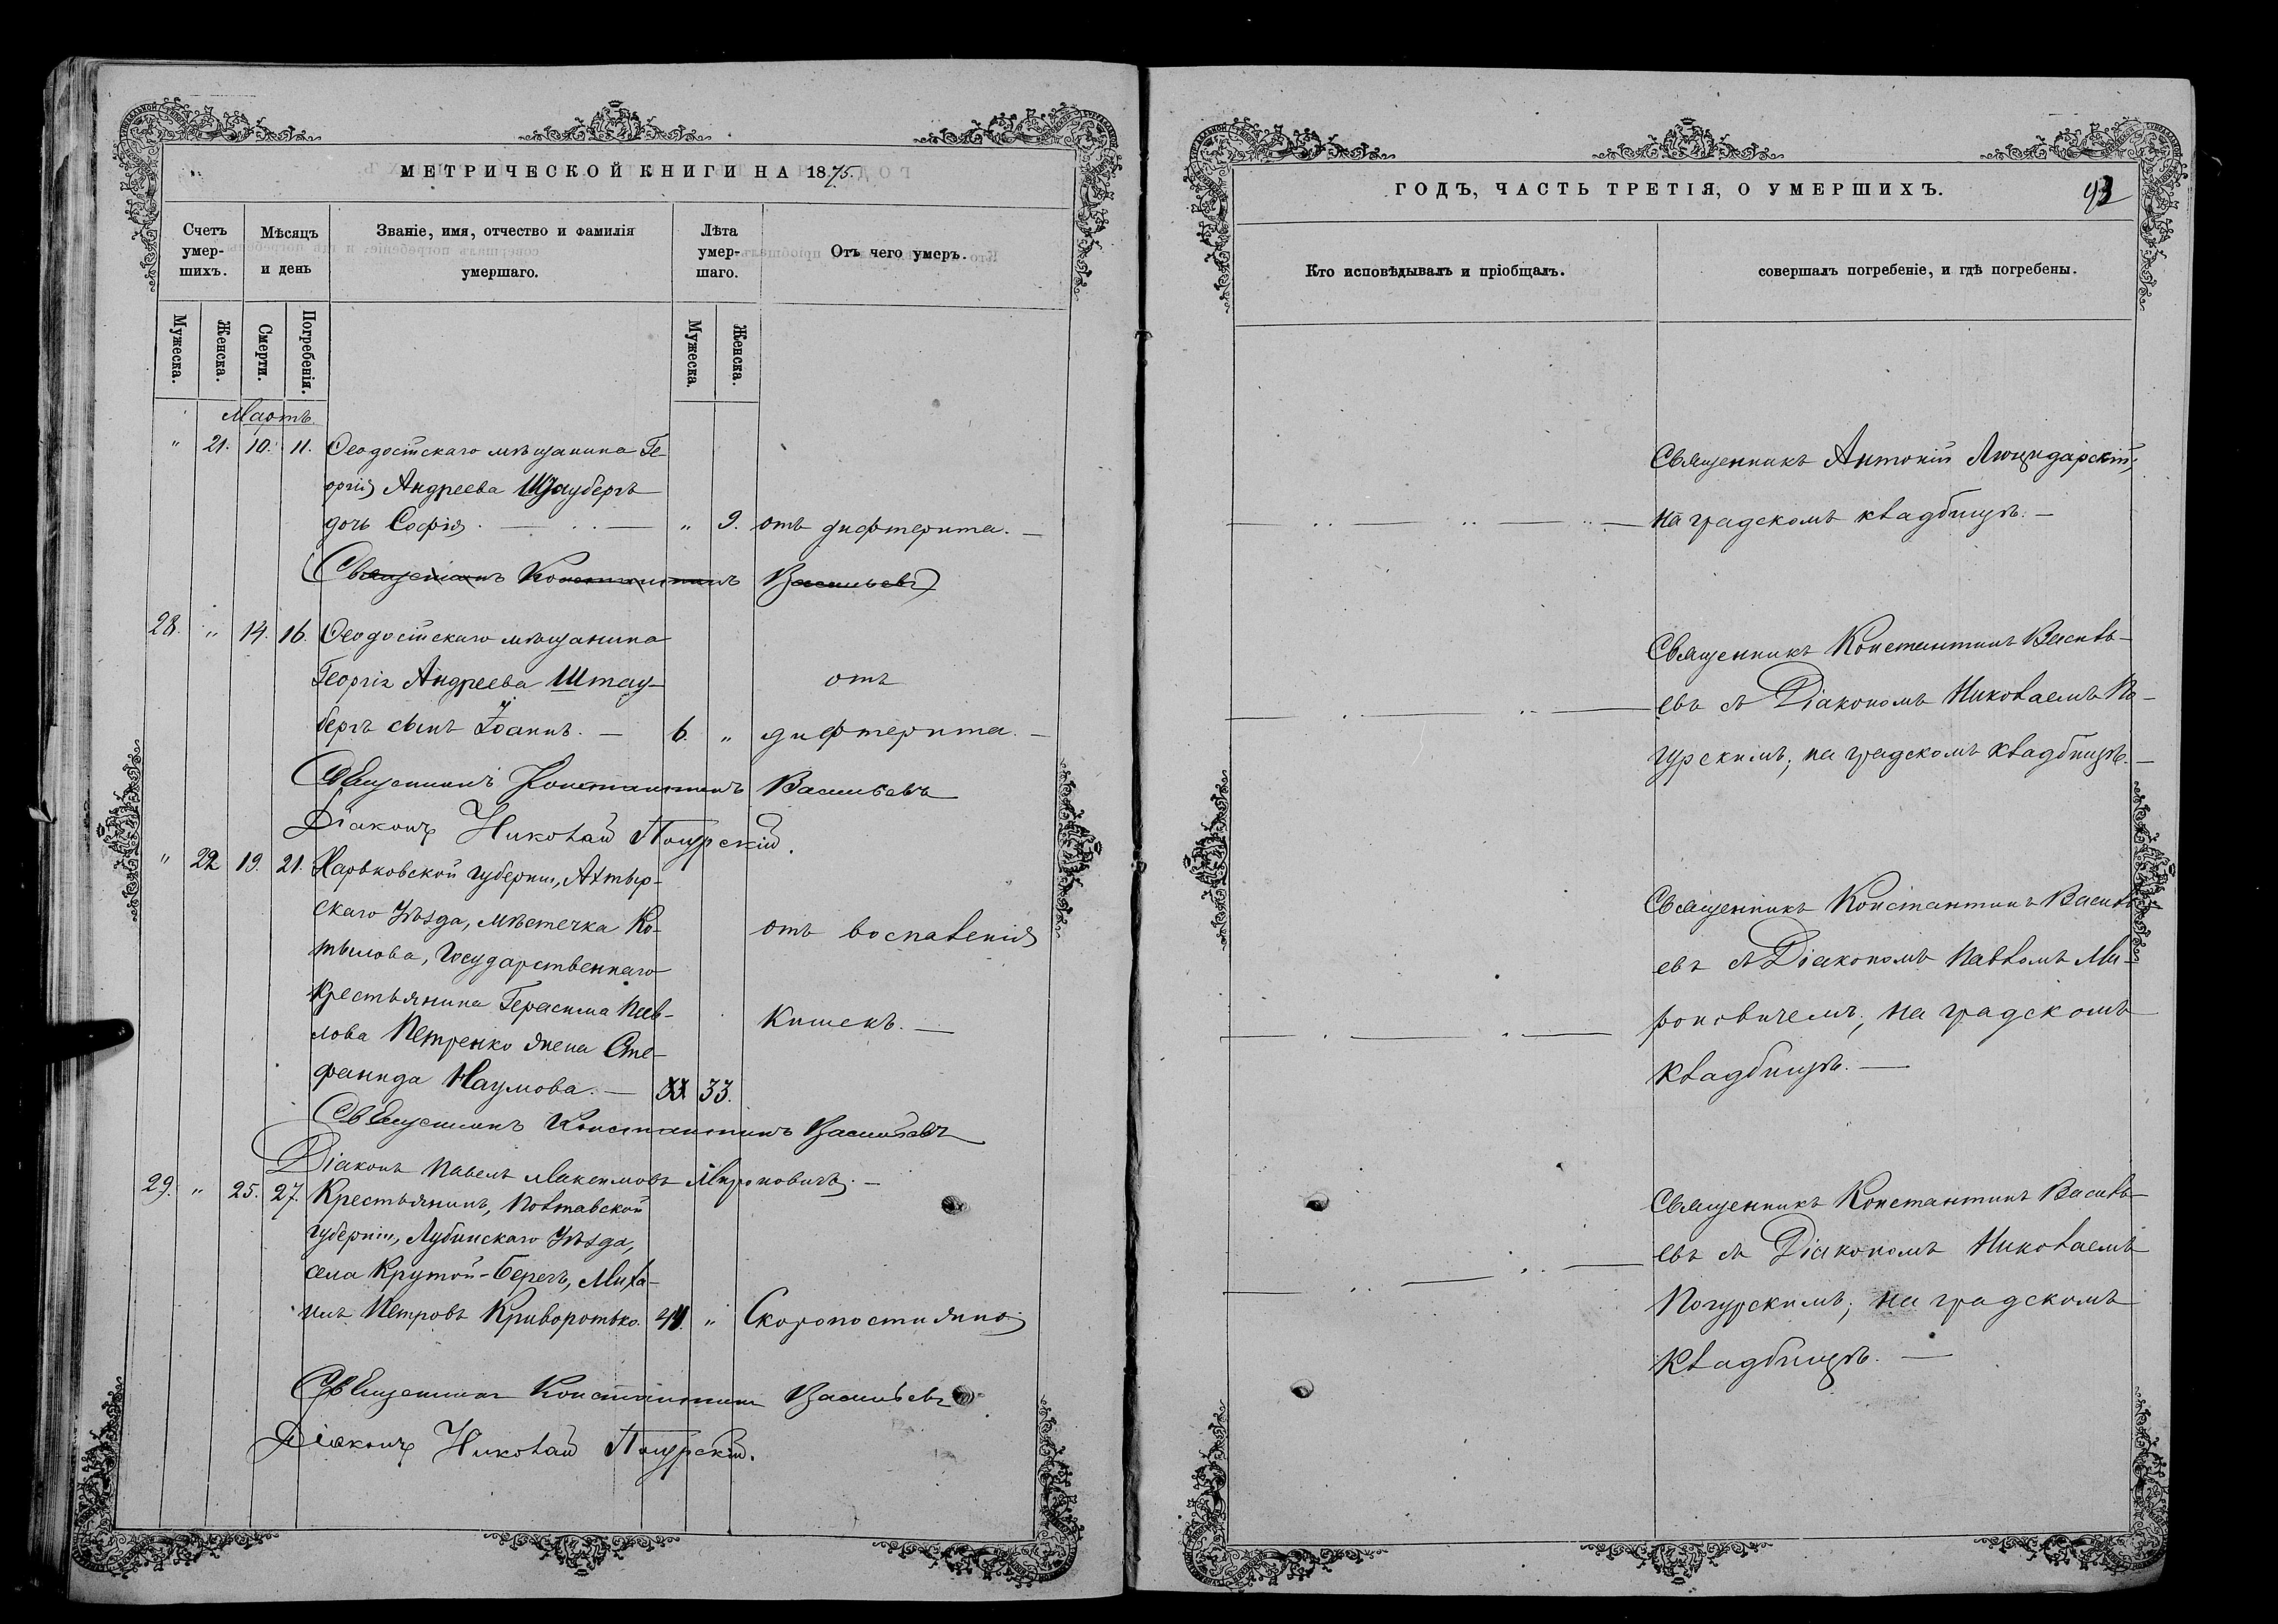 МЕТРИЧЕСКОЙ КНИГИ НА 1875.
Счетъ умер-шихъ. Мѣсяцъ и день Званіе, имя, отчество и фамилія умершаго. Лѣта умер-шаго. Отъ чего умеръ.
Мужеска. Женска. Смерти. Погребенія. Мужеска. Женска.
Мартъ.
" 21. 10. 11. Ѳеодосійскаго мѣщанина Ге-
оргія Андреева Штауберъ
дочь Софія. " 9. отъ дифтерита.
Священникъ Константинъ Васильевъ
28. " 14. 16. Ѳеодосійскаго мѣщанина
Георгія Андреева Штау- отъ
беръ сынъ Іоаннъ. 6. " дифтерита.
Священникъ Константинъ Васильевъ
Діаконъ Николай Погурскій.
" 22 19. 21. Харьковской губерніи, Ахтыр-
скаго Уѣзда, мѣстечка Ко- отъ воспаленія
тылова, Государственнаго
Крестьянина Герасима Пав- Кишекъ.
лова Петренко жена Сте-
фанида Наумова. 33.
Священникъ Константинъ Васильевъ
Діаконъ Павелъ Максимовъ Мироновичъ.
29. " 25. 27. Крестьянинъ, Полтавской
губерніи, Лубинскаго Уѣзда,
села Крутой-Берегъ, Миха-
илъ Петровъ Криворотько. 41. " Скоропостижно
Священникъ Константинъ Васильевъ
Діаконъ Николай Погурскій.
ГОДЪ, ЧАСТЬ ТРЕТІЯ, О УМЕРШИХЪ.
Кто исповѣдывалъ и пріобщалъ. совершалъ погребеніе, и гдѣ погребены.
Священникъ Антоній
на градскомъ кладбищѣ.
Священникъ Константинъ Василь-
евъ съ Діакономъ Николаемъ По-
гурскимъ; на градскомъ кладбищѣ.
Священникъ Константинъ Василь-
евъ съ Діакономъ Павломъ Ми-
роновичемъ; на градскомъ
кладбищѣ.
Священникъ Константинъ Василь-
евъ съ Діакономъ Николаемъ
Погурскимъ; на градскомъ
Кладбищѣ.